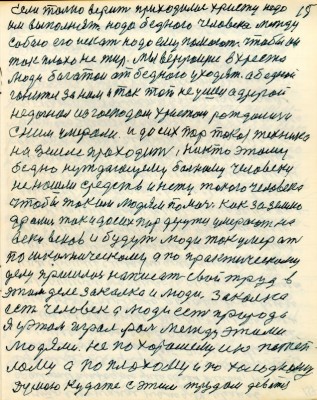 15
если только верит приходили к христу надо
им выполнят надо бедного человека между
собою его искат надо ему помогат чтобы он
так плохо не жил. Мы верующие в христа
люди богатои от бедного уходят. а бедной
гонится за ним. а так тот не ушел а другой
не догнал из господом христом рождалися
с ним умерали. и до сих пор такая техника
на земле проходит, никто этому
бедно нуждающему больному человеку
не нашли средств и нету такого человека
чтобы таким людям помоч. как за землю
дралис так и до сих пор дерутся умерают на
веки веков и будут люди так умерат
по техническому а по практическому
делу пришлос написат свой труд в
этом деле закалка и люди. Закалка
ест человек а люди ест природа
я у этом играл рол между этими
людями. не по хорошему и по теплому
а по плохому и по холодному
думаю куда те с этим трудом деват